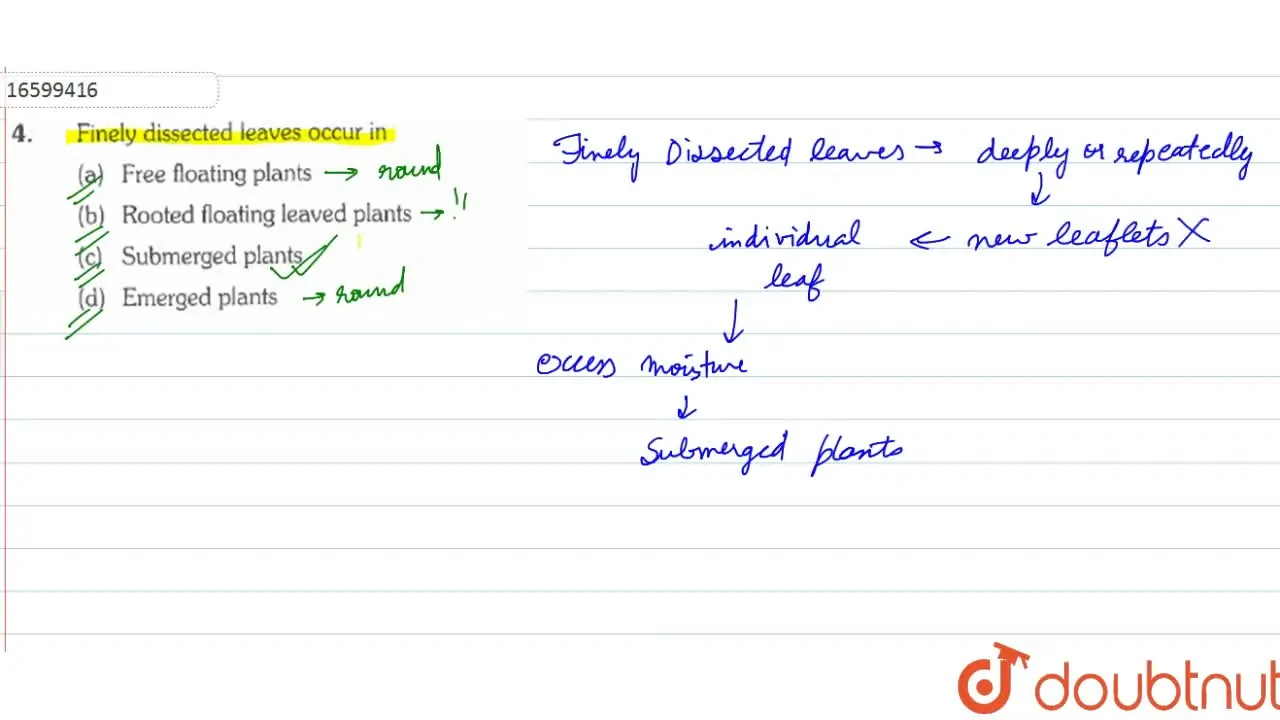 16599416
4. Finely dissected leaves occur in
(a) Free floating plants → round
(b) Rooted floating leaved plants → "
(c) Submerged plants
(d) Emerged plants → round
Finely Dissected leaves → deeply or repeatedly
↓
individual ← new leaflets X
leaf
↓
excess moisture
↓
Submerged plants
doubtnut